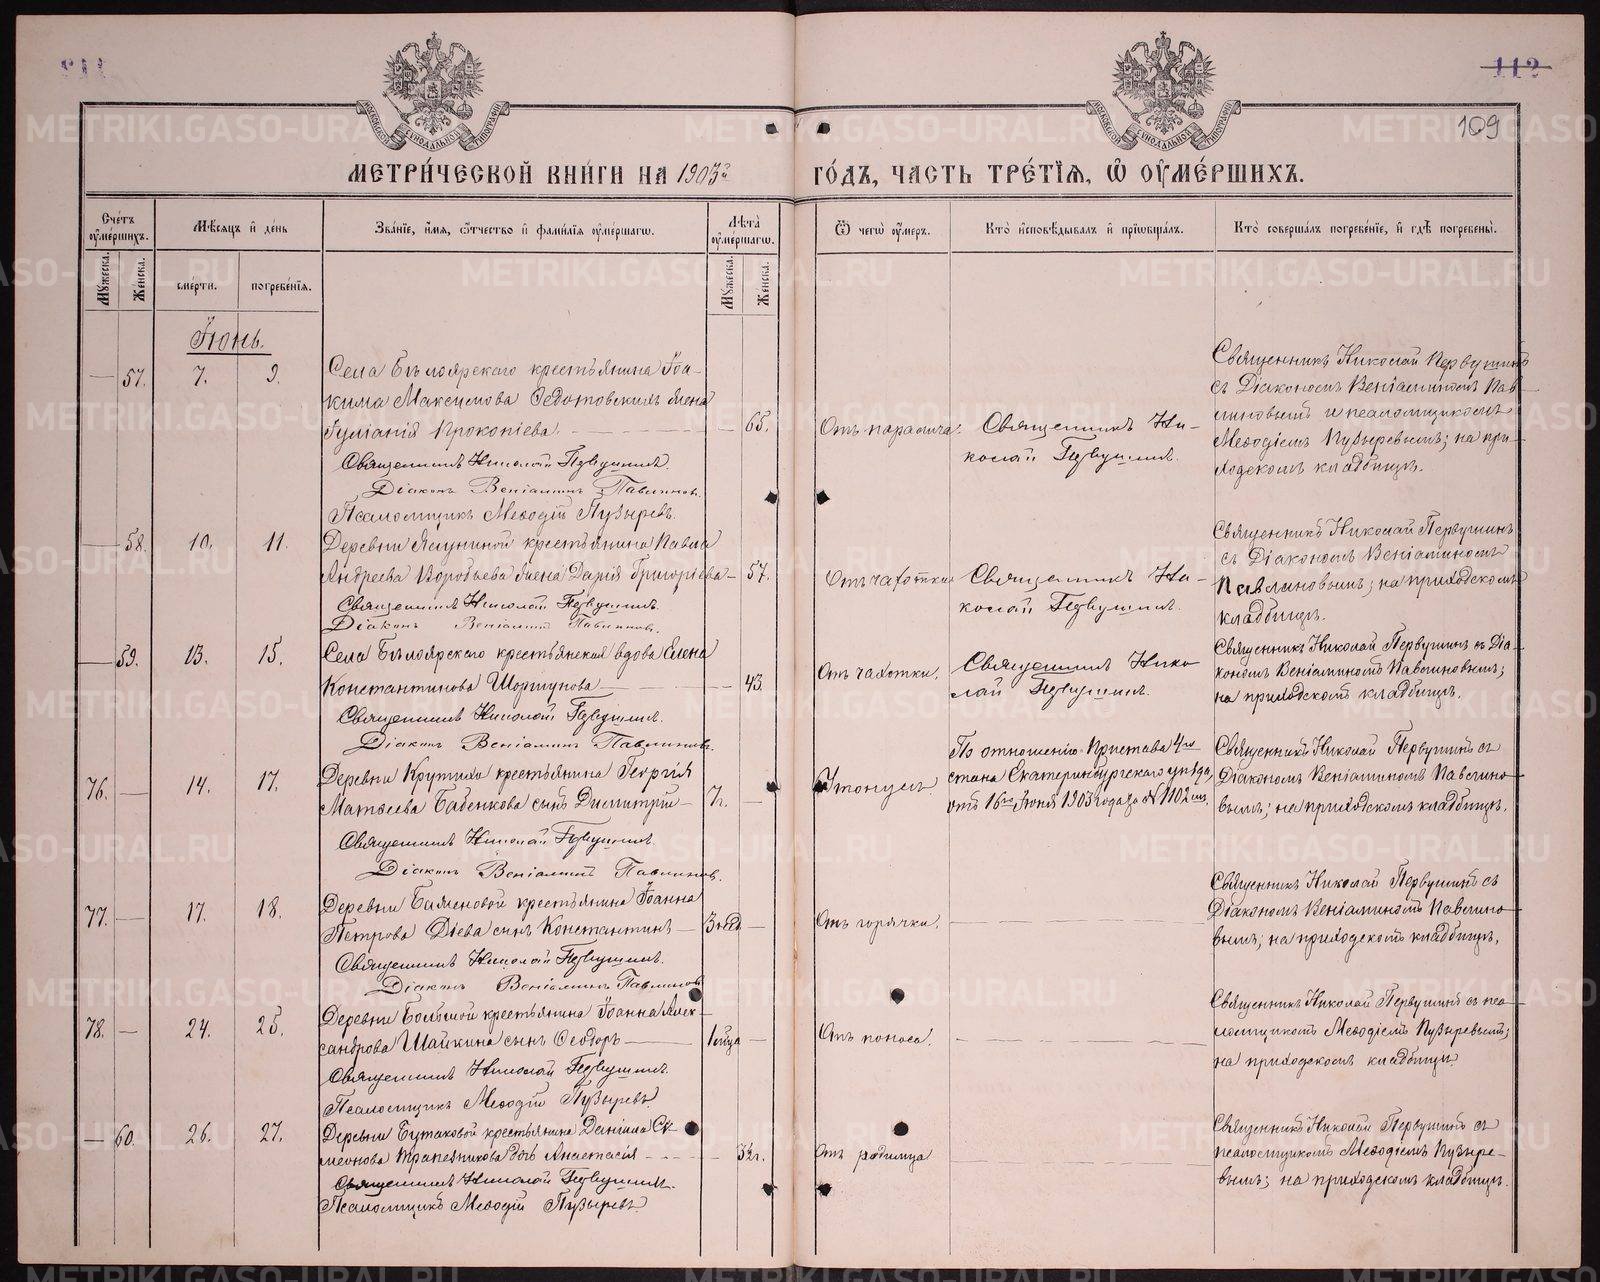 112
109
МЕТРИ́ЧЕСКОЙ КНИ́ГИ НА 1903й
ГО́ДЪ, ЧАСТЬ ТРЕ́ТІѦ, Ѡ ОУМЕ́РШИХЪ.
Сче́тъ оуме́ршихъ.
Мꙋжеска.
Же́нска.
Мѣ́сѧцъ и҆ де́нь
сме́рти.
погребе́нїѧ.
Зва́нїе, и҆́мѧ, ѻ҆́тчество и҆ фамилїѧ оуме́ршагѡ.
Лѣ́та оуме́ршагѡ.
Мꙋжеска.
Же́нска.
Ѿ чегѡ̀ оу́меръ.
Кто̀ и҆сповѣ́дывалъ и҆ прїѡбща́лъ.
Кто̀ соверша́лъ погребе́нїе, и҆ гдѣ̀ погребены̀.
Іюнь.
— 57. 7. 9.
Села Бѣлоярскаго крестьянина Іоа-
кима Максимова Федотовскихъ жена
Іуліанія Прокопіева. — 65.
Священникъ Николай Первушинъ.
Діаконъ Веніаминъ Павлиновъ.
Псаломщикъ Меѳодій Пузыревъ.
Отъ паралича.
Священникъ Ни-
колай Первушинъ.
Священникъ Николай Первушинъ
съ Діакономъ Веніаминомъ Пав-
линовымъ и псаломщикомъ
Меѳодіемъ Пузыревымъ; на при-
ходскомъ кладбищѣ.
— 58. 10. 11.
Деревни Ялуниной крестьянина Павла
Андреева Воробьева жена Дарія Григоріева — 57.
Священникъ Николай Первушинъ.
Діаконъ Веніаминъ Павлиновъ.
Отъ чахотки
Священникъ Ни-
колай Первушинъ.
Священникъ Николай Первушинъ
съ Діакономъ Веніаминомъ
Павлиновымъ; на приходскомъ
кладбищѣ.
— 59. 13. 15.
Села Бѣлоярскаго крестьянская вдова Елена
Константинова Шоршунова — 43.
Священникъ Николай Первушинъ.
Діаконъ Веніаминъ Павлиновъ.
Отъ чахотки.
Священникъ Нико
лай Первушинъ.
Священникъ Николай Первушинъ съ Діа-
кономъ Веніаминомъ Павлиновымъ;
на приходскомъ кладбищѣ.
76. — 14. 17.
Деревни Крутихи крестьянина Георгія
Матвѣева Бабенкова сынъ Димитрій — 7г. —
Священникъ Николай Первушинъ.
Діаконъ Веніаминъ Павлиновъ.
Утонулъ
По отношенію Пристава 4го
стана Екатеринбургскаго уѣзда,
отъ 16го Іюня 1903 года за № 1102мъ.
Священникъ Николай Первушинъ съ
Діакономъ Веніаминомъ Павлино-
вымъ; на приходскомъ кладбищѣ.
77. — 17. 18.
Деревни Баженовой крестьянина Іоанна
Петрова Діева сынъ Константинъ — 3нед. —
Священникъ Николай Первушинъ.
Діаконъ Веніаминъ Павлиновъ
Отъ горячки.
Священникъ Николай Первушинъ съ
Діакономъ Веніаминомъ Павлино-
вымъ; на приходскомъ кладбищѣ.
78. — 24. 25.
Деревни Большой крестьянина Іоанна Алек-
сандрова Шайкина сынъ Ѳеодоръ —
Священникъ Николай Первушинъ.
Псаломщикъ Меѳодій Пузыревъ.
Отъ поноса.
Священникъ Николай Первушинъ съ пса-
ломщикомъ Меѳодіемъ Пузыревымъ;
на приходскомъ кладбищѣ
— 60. 26. 27.
Деревни Бутаковой крестьянина Даніила Си-
меонова Трапезникова дочь Анастасія — 3½г.
Священникъ Николай Первушинъ.
Псаломщикъ Меѳодій Пузыревъ
Отъ родимца
Священникъ Николай Первушинъ съ
псаломщикомъ Меѳодіемъ Пузыре-
вымъ; на приходскомъ кладбищѣ.
METRIKI.GASO-URAL.RU